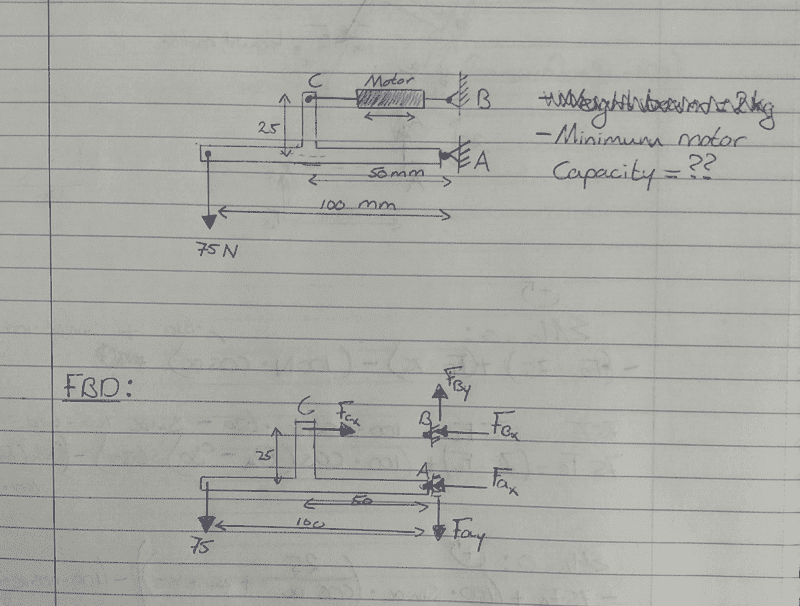 C
Motor
B
25
A
50mm
100 mm
75N
- Minimum motor
Capacity = ??
FBD:
FBy
C
Fcx
B
FBx
25
A
Fax
50
100
75
Fay